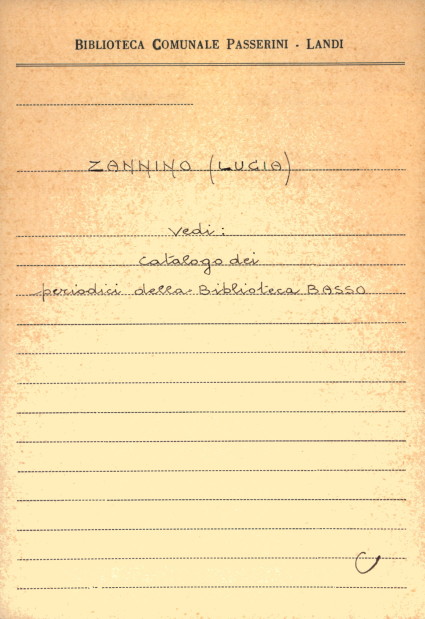 BIBLIOTECA COMUNALE PASSERINI - LANDI
ZANNINO (LUCIA)
Vedi:
Catalogo dei
periodici della Biblioteca BASSO